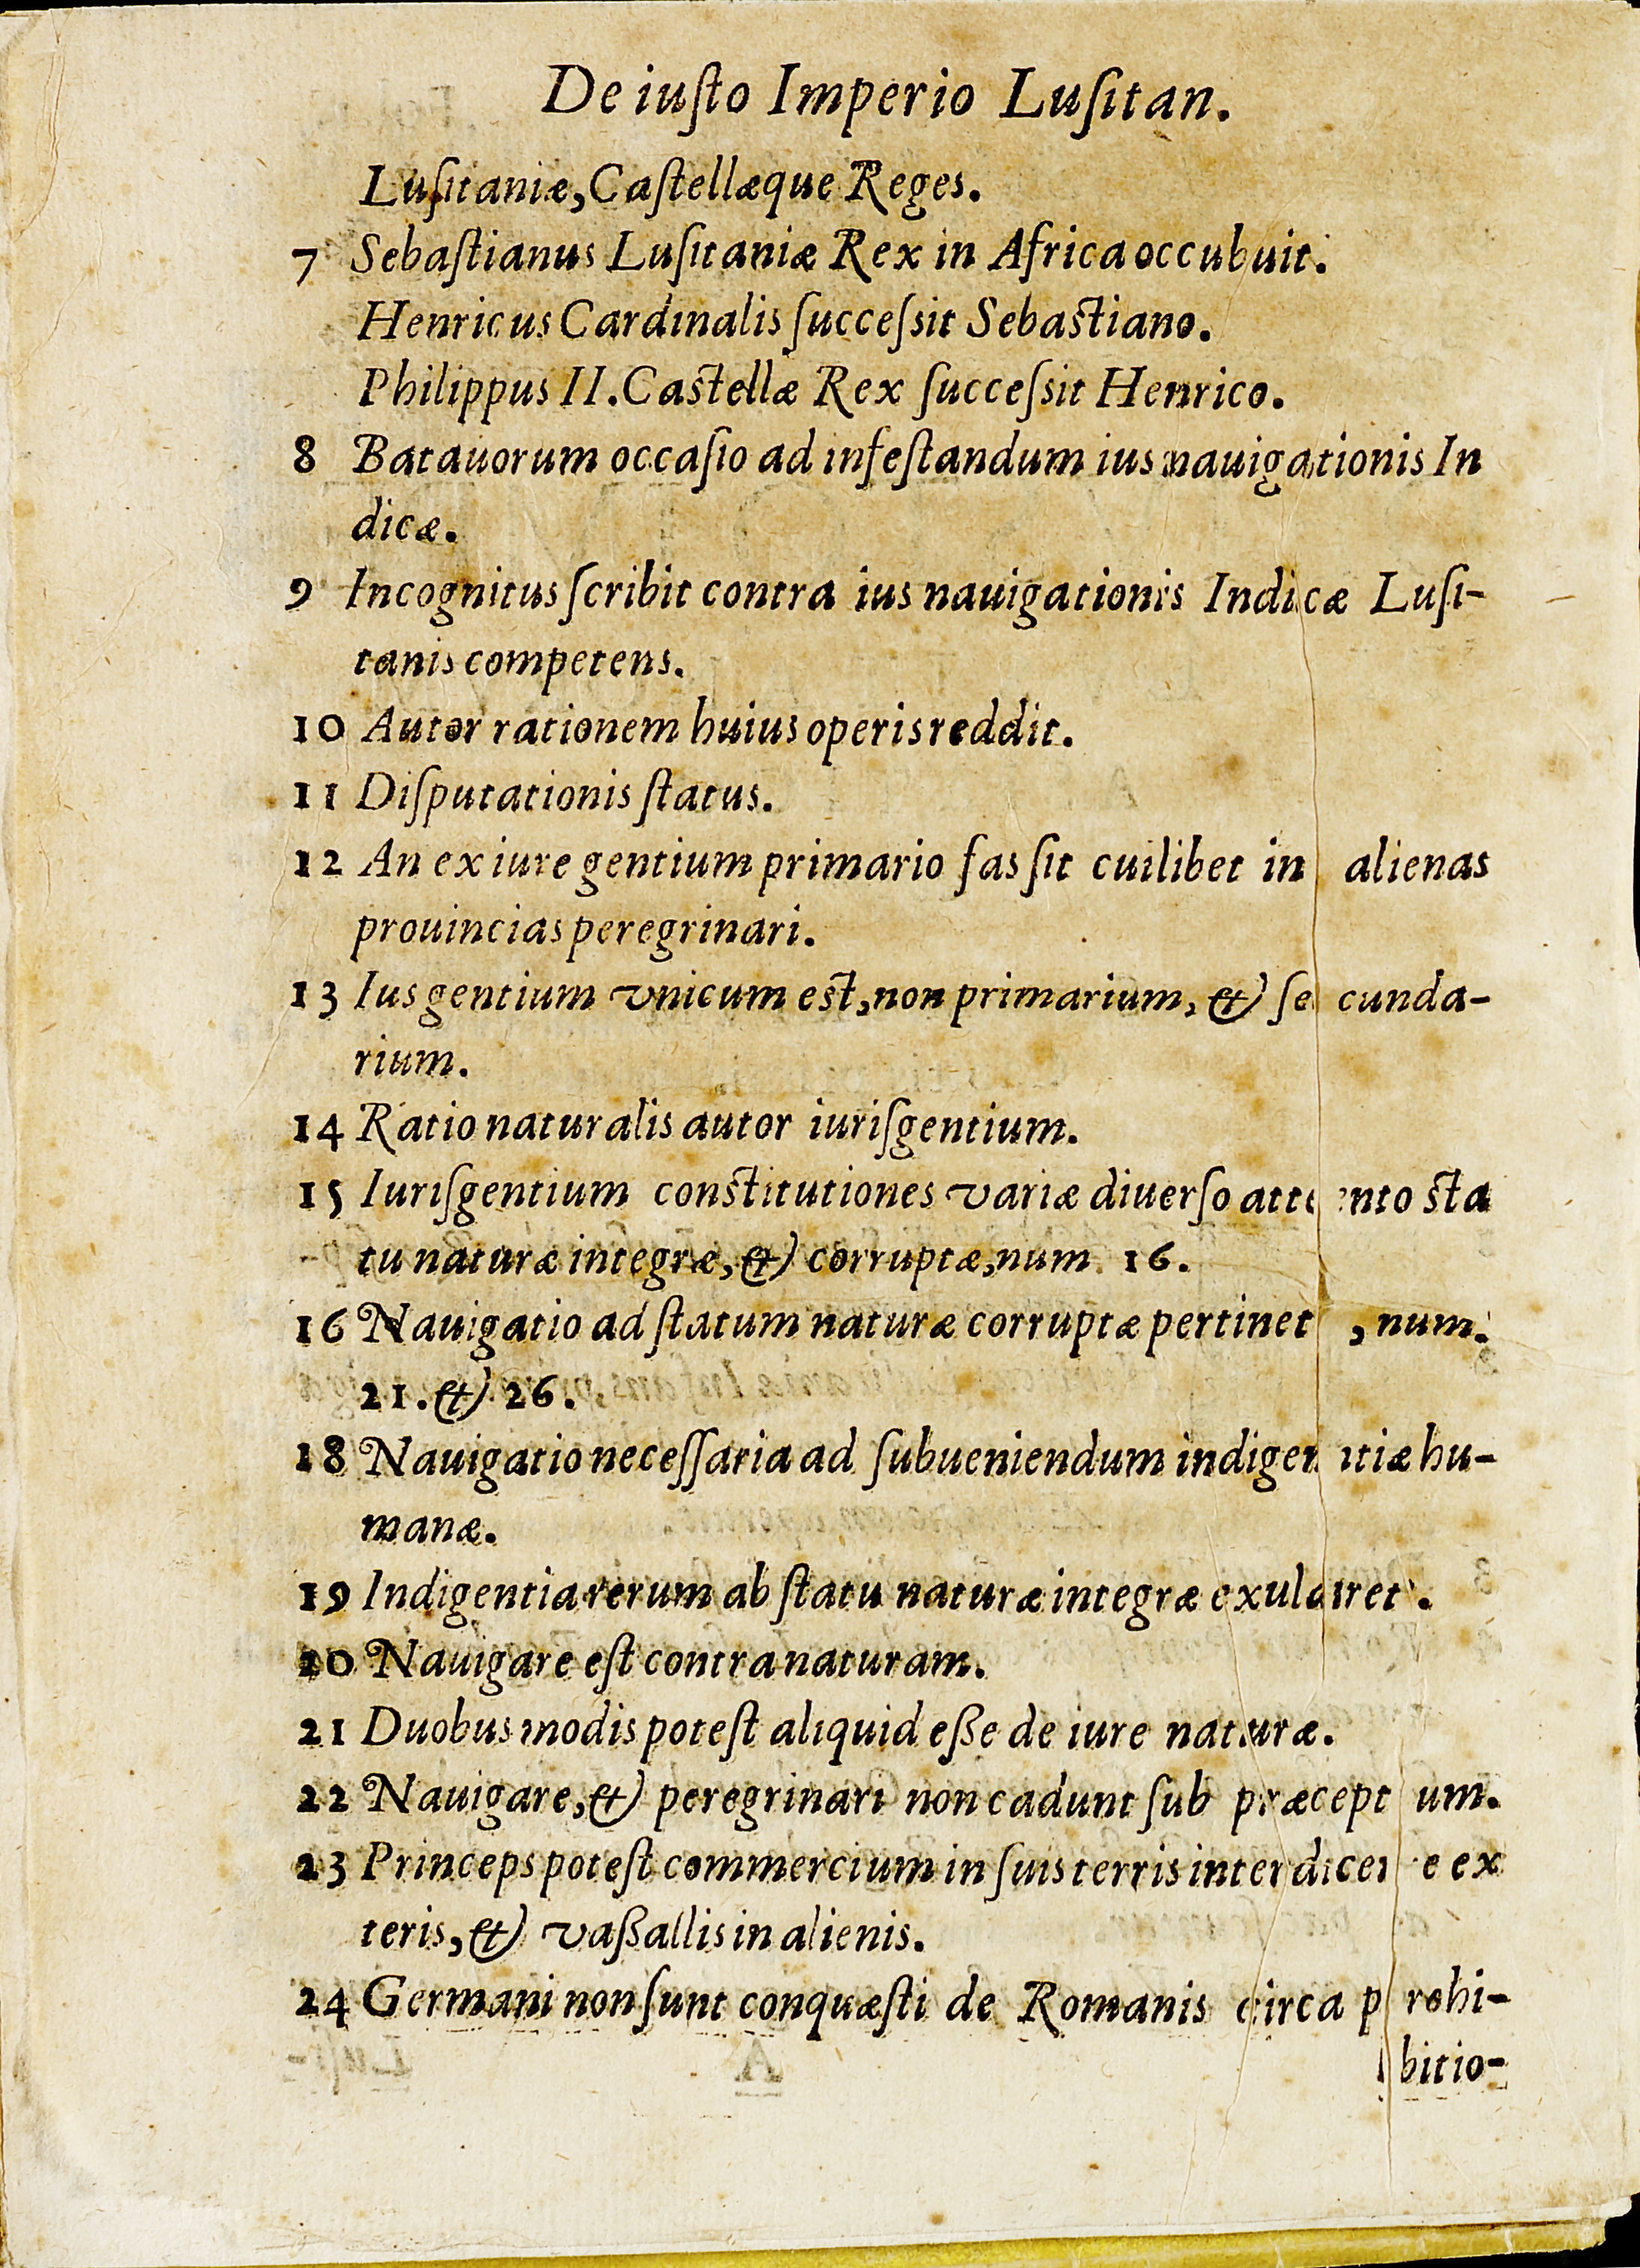 De iuſto Imperio Luſitan.
Luſitaniæ, Caſtellæque Reges.
7 Sebaſtianus Luſitaniæ Rex in Africa occubuit.
Henricus Cardinalis ſucceſsit Sebaſtiano.
Philippus II. Caſtellæ Rex ſucceſsit Henrico.
8 Batauorum occaſio ad infeſtandum ius nauigationis In
dicæ.
9 Incognitus ſcribit contra ius nauigationis Indicæ Luſi-
tanis competens.
10 Autor rationem huius operis reddit.
11 Diſputationis ſtatus.
12 An ex iure gentium primario fas ſit cuilibet in alienas
prouincias peregrinari.
13 Ius gentium vnicum eſt, non primarium, & ſecunda-
rium.
14 Ratio naturalis autor iuriſgentium.
15 Iuriſgentium conſtitutiones variæ diuerſo attento ſta
tu naturæ integræ, & corruptæ, num. 16.
16 Nauigatio ad ſtatum naturæ corruptæ pertinet, num.
21. & 26.
18 Nauigatio neceſſaria ad ſubueniendum indigentiæ hu-
manæ.
19 Indigentia rerum ab ſtatu naturæ integræ exularet.
20 Nauigare eſt contra naturam.
21 Duobus modis poteſt aliquid eße de iure naturæ.
22 Nauigare, & peregrinari non cadunt ſub præceptum.
23 Princeps poteſt commercium in ſuis terris interdicere ex
teris, & vaßallis in alienis.
24 Germani non ſunt conquæſti de Romanis circa prohi-
bitio-